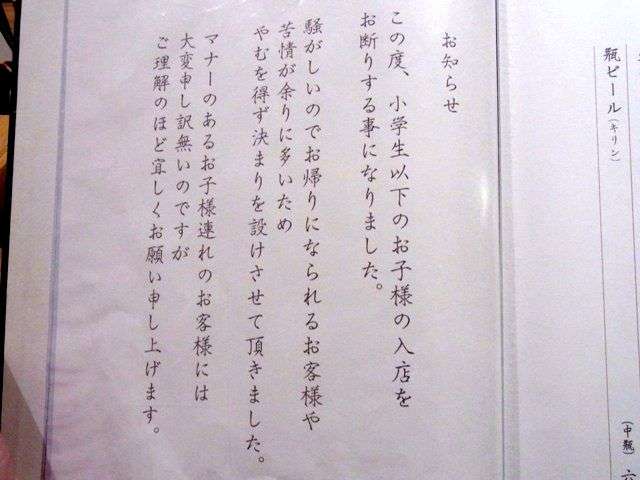 瓶ビール(キリン)
(中瓶)
お知らせ
この度、小学生以下のお子様の入店を
お断りする事になりました。
騒がしいのでお帰りになられるお客様や
苦情が余りに多いため
やむを得ず決まりを設けさせて頂きました。
マナーのあるお子様連れのお客様には
大変申し訳無いのですが
ご理解のほど宜しくお願い申し上げます。